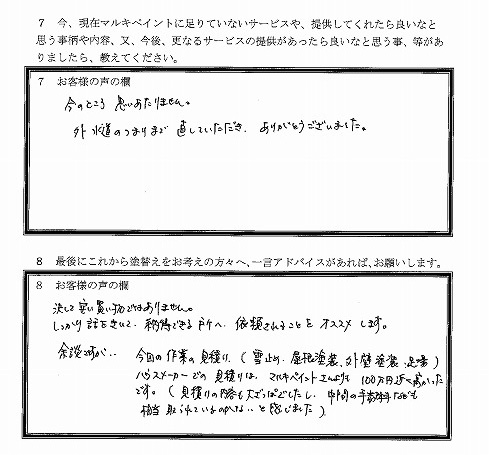 7 今、現在マルキペイントに足りていないサービスや、提供してくれたら良いなと
思う事柄や内容、又、今後、更なるサービスの提供があったら良いなと思う事、等があ
りましたら、教えてください。
7 お客様の声の欄
今のところ 思いあたりません。
外水道のつまりまで 直していただき、ありがとうございました。
8 最後にこれから塗替えをお考えの方々へ、一言アドバイスがあれば、お願いします。
8 お客様の声の欄
決して安い買い物ではありません。
しっかり話をきいて、納得できる所へ、依頼されることを オススメします。
余談ですが、、 今回の作業の見積り、(雪止め、屋根塗装、外壁塗装、足場)
ハウスメーカーでの見積りは、マルキペイントさんよりも 100万円近く高かった
です。(見積りの内容も大ざっぱでしたし、中間の手数料なども
相当 取られているのかな、と感じました)